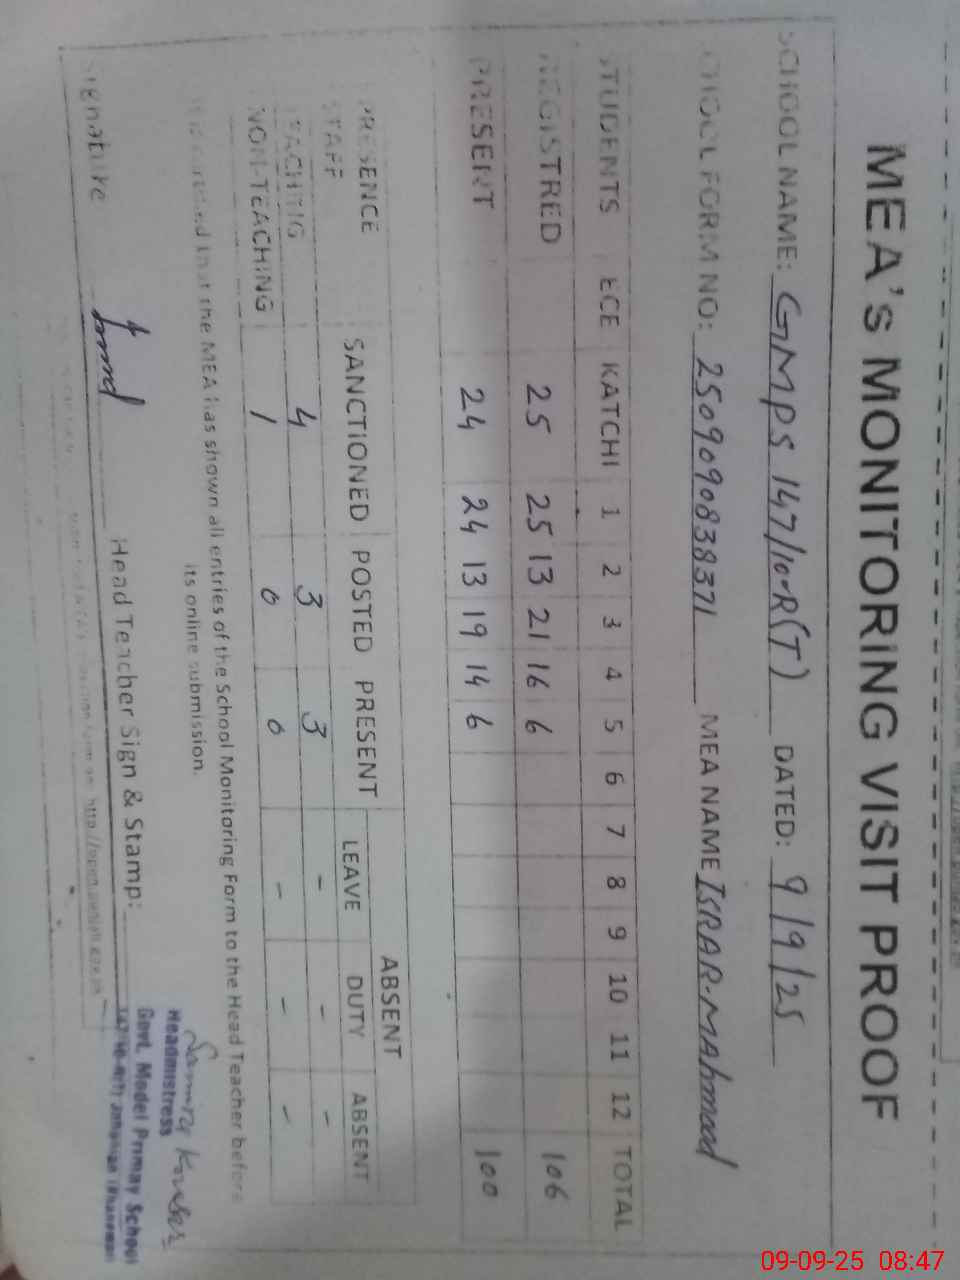 MEA's MONITORING VISIT PROOF
SCHOOL NAME: GMPS 147/10-R(T) DATED: 9/9/25
SCHOOL FORM NO: 2509090838371 MEA NAME ISRAR-MAhmood
STUDENTS ECE KATCHI 1 2 3 4 5 6 7 8 9 10 11 12 TOTAL
REGISTRED 25 25 13 21 16 6 106
PRESENT 24 24 13 19 14 6 100
ABSENT
PRESENCE SANCTIONED POSTED PRESENT LEAVE DUTY ABSENT
STAFF
TEACHING 4 3 3 - - -
NON-TEACHING 1 0 0 - - -
that the MEA has shown all entries of the School Monitoring Form to the Head Teacher before
its online submission.
Signature Head Teacher Sign & Stamp:
Headmistress
Govt. Model Primay School
147/10-R(T) Jahanian (Khanewal)
09-09-25 08:47